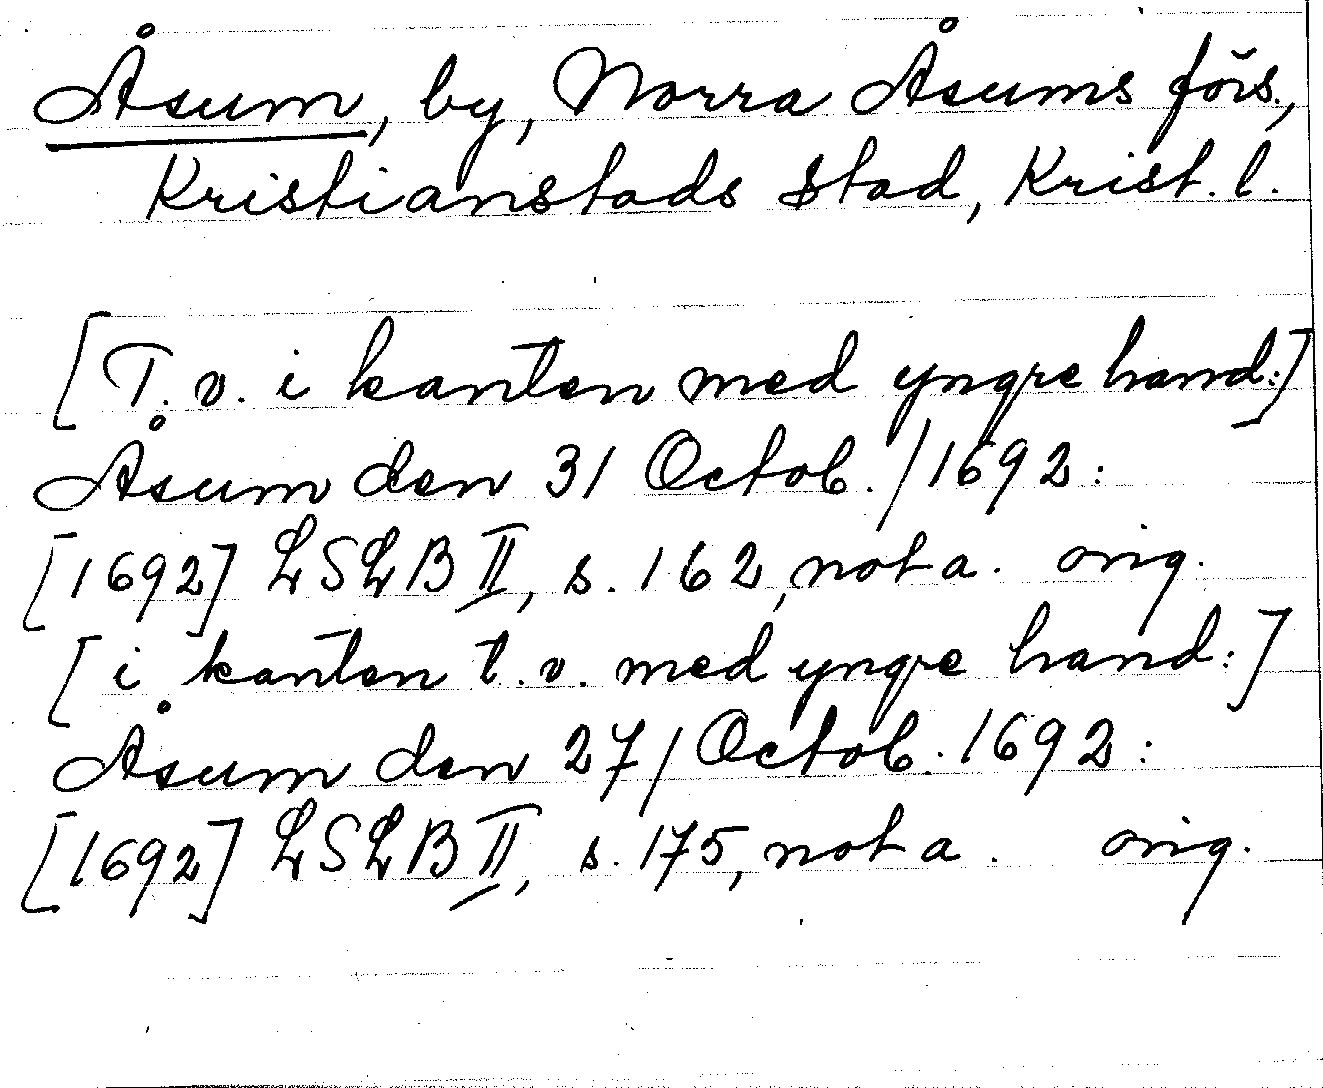 Åsum, by, Norra Åsums förs.,
Kristianstads stad, Krist. l.
[T. v. i kanten med yngre hand:]
Åsum den 31 Octob. / 1692:
[1692] LSLB II, s. 162, not a. orig.
[i kanten t. v. med yngre hand:]
Åsum den 27 / Octob. 1692:
[1692] LSLB II, s. 175, not a. orig.